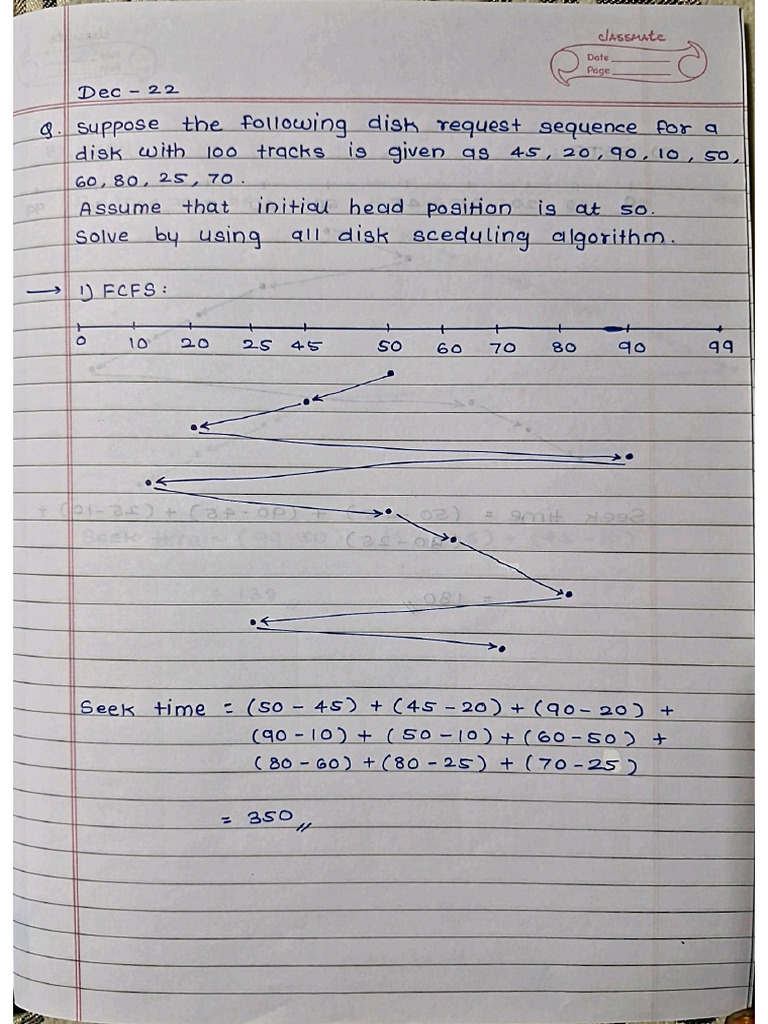 classmate
Date
Page
Dec - 22
Q. Suppose the following disk request sequence for a
disk with 100 tracks is given as 45, 20, 90, 10, 50,
60, 80, 25, 70.
Assume that initial head position is at 50.
Solve by using all disk sceduling algorithm.
→ 1) FCFS :
0 10 20 25 45 50 60 70 80 90 99
Seek time = (50 - 45) + (45 - 20) + (90 - 20) +
(90 - 10) + (50 - 10) + (60 - 50) +
(80 - 60) + (80 - 25) + (70 - 25)
= 350 //